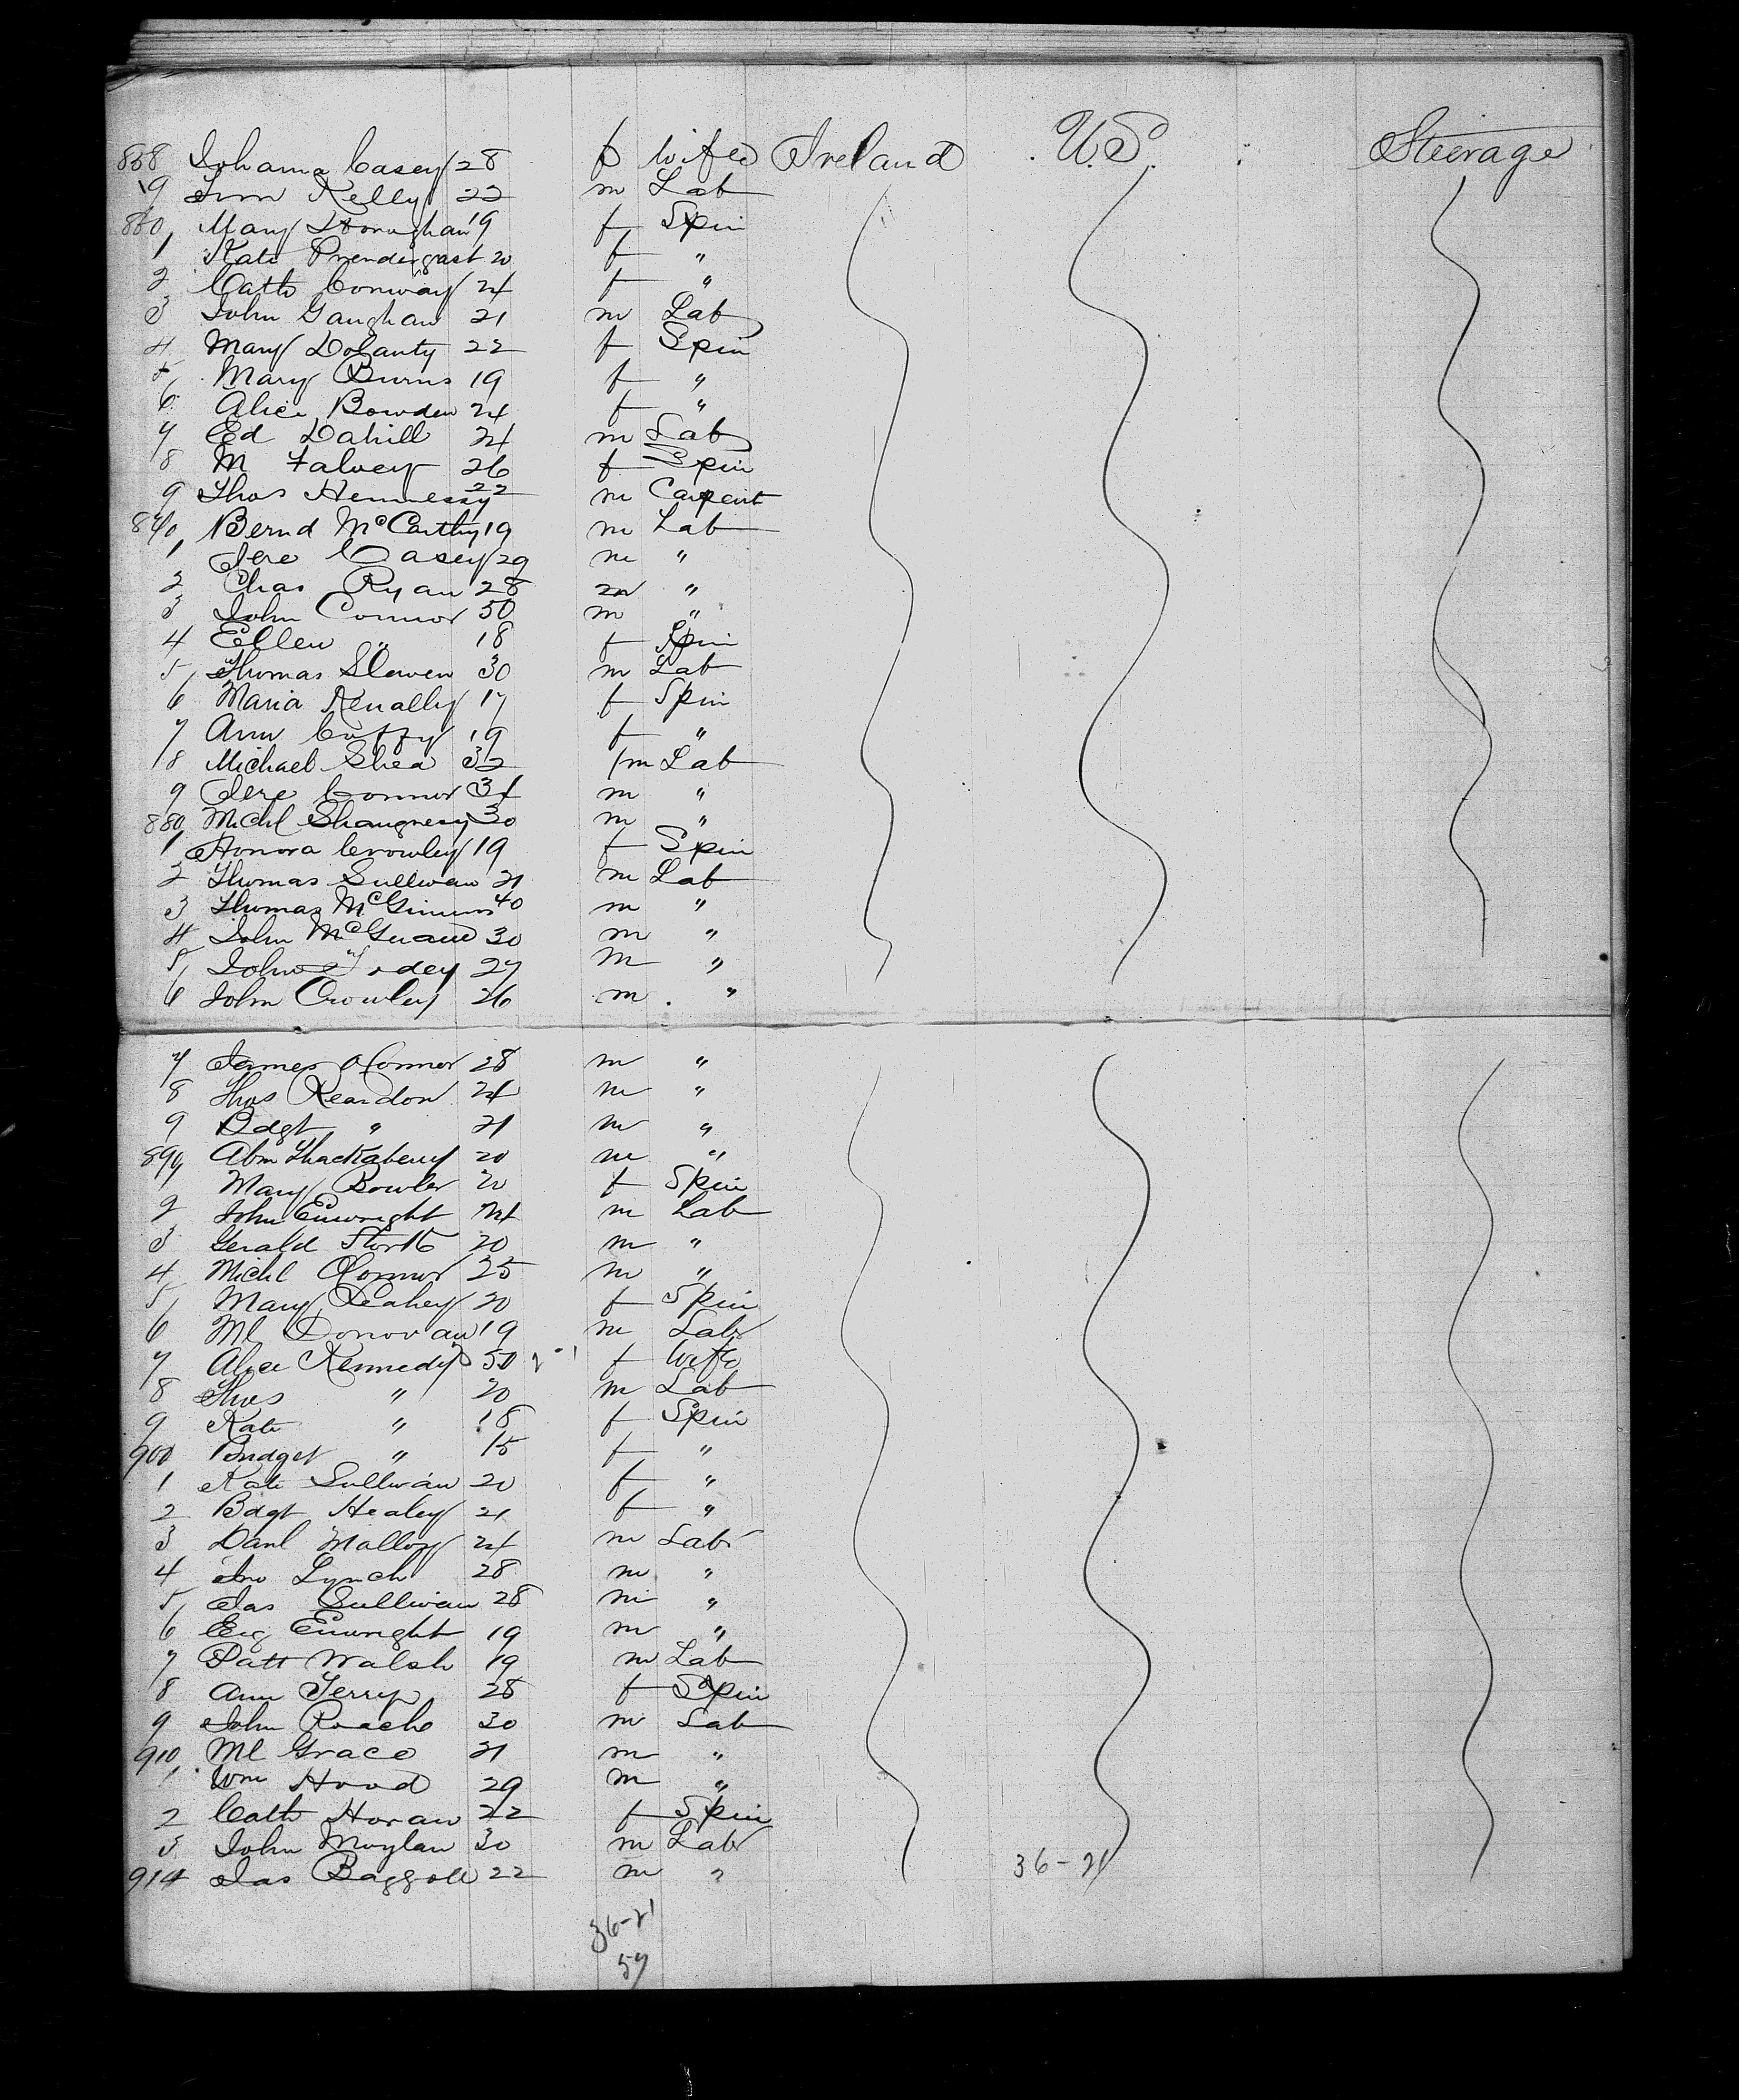 858 Johanna Casey 28 f Wife Ireland U.S. Steerage
9 Tim Kelly 22 m Lab
860 Mary Honughan 19 f Spin
1 Kate Prendergast 20 f "
2 Cath Conway 24 f "
3 John Gaughan 21 m Lab
4 Mary Dolanty 22 f Spin
5 Mary Burns 19 f "
6 Alice Bowden 24 f "
7 Ed Dahill 24 m Lab
8 M Falvey 26 f Spin
9 Thos Hennessy 22 m Carpent
870 Bernd McCarthy 19 m Lab
1 Jere Casey 29 m "
2 Chas Ryan 28 m "
3 John Connor 50 m "
4 Ellen " 18 f Spin
5 Thomas Slaven 30 m Lab
6 Maria Kenally 17 f Spin
7 Ann Cuffy 19 f "
8 Michael Shea 32 m Lab
9 Jere Connor 34 m "
880 Michl Shaugnesy 30 m "
1 Honora Crowley 19 f Spin
2 Thomas Sullivan 21 m Lab
3 Thomas McGinnis 40 m "
4 John McGuane 30 m "
5 John 27 m "
6 John Crowley 26 m "
7 James OConnor 28 m "
8 Thos Reardon 24 m "
9 Bdgt " 21 m "
890 Abm Thackaberry 20 m "
Mary Bowler 20 f Spin
2 John Enwright 24 m Lab
3 Gerald 20 m "
4 Michl OConnor 25 m "
5 Mary Leahey 20 f Spin
6 Ml Donovan 19 m Lab
7 Alice Kennedy 50 f Wife
8 Thos " 20 m Lab
9 Kate " 18 f Spin
900 Bridget " 15 f "
1 Kate Sullivan 20 f "
2 Bdgt Healey 21 f "
3 Danl Malloy 24 m Lab
4 Jno Lynch 28 m "
5 Jas Sullivan 28 m "
6 Enwright 19 m "
7 Patt Walsh 19 m Lab
8 Ann Terry 28 f Spin
9 John Roache 30 m Lab
910 Ml Grace 21 m "
1 Wm Hood 29 m "
2 Cath Horan 22 f Spin
3 John Moylan 30 m Lab
914 Jas Baggott 22 m "
36-21
36-21
57